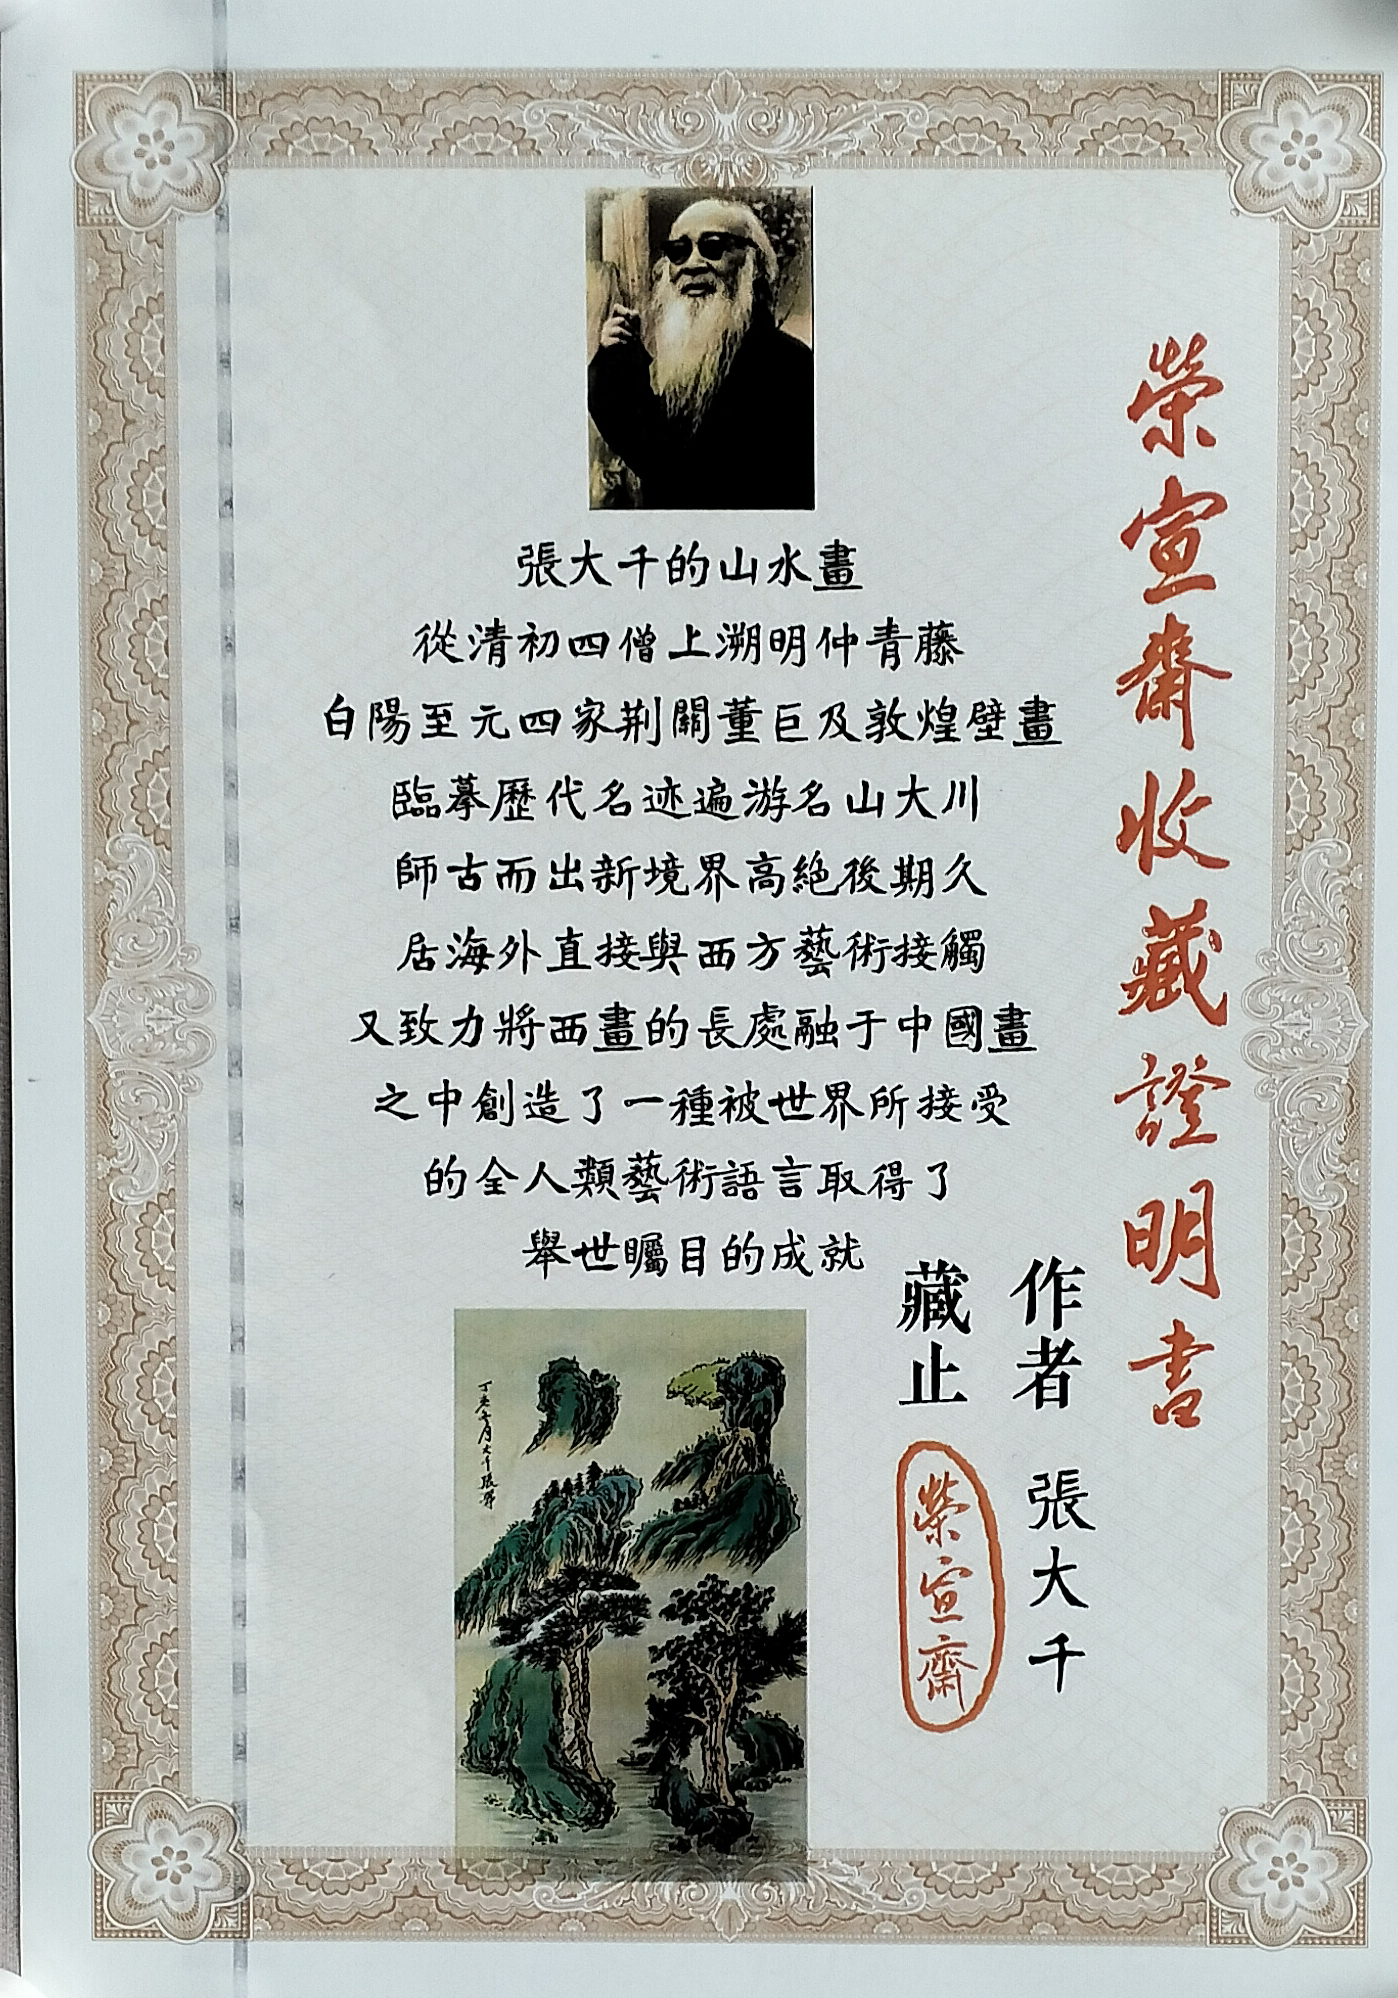 榮宣齋收藏證明書
張大千的山水畫
從清初四僧上溯明仲青藤
白陽至元四家荆關董巨及敦煌壁畫
臨摹歷代名迹遍游名山大川
師古而出新境界高絶後期久
居海外直接與西方藝術接觸
又致力將西畫的長處融于中國畫
之中創造了一種被世界所接受
的全人類藝術語言取得了
舉世矚目的成就
作者 張大千
藏止 榮宣齋